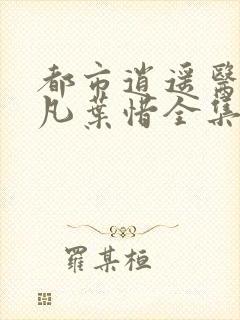 都市逍遥醫
凡葉惜全集
羅某桓